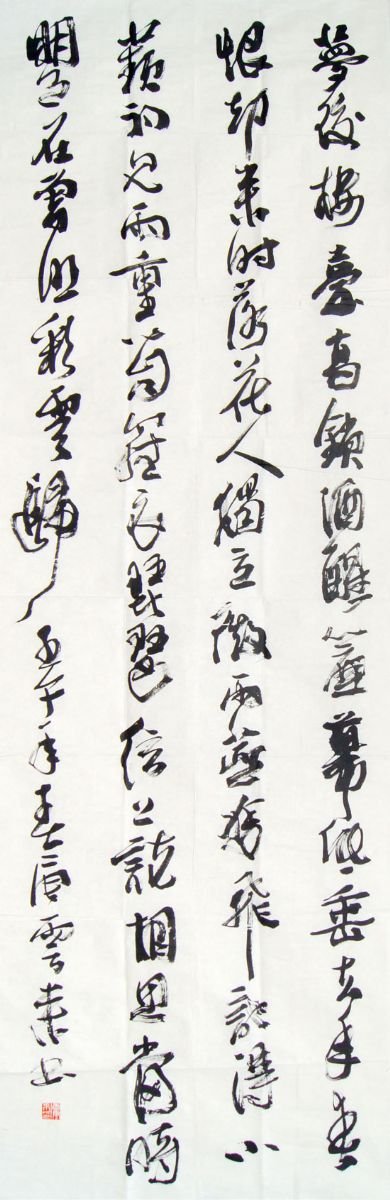 夢後樓臺高鎖酒醒簾幕低垂去年春
恨却来时落花人獨立微雨燕雙飛記得小
蘋初見兩重心字羅衣琵琶弦上說相思當時
明月在曾照彩雲歸 午年春雲书